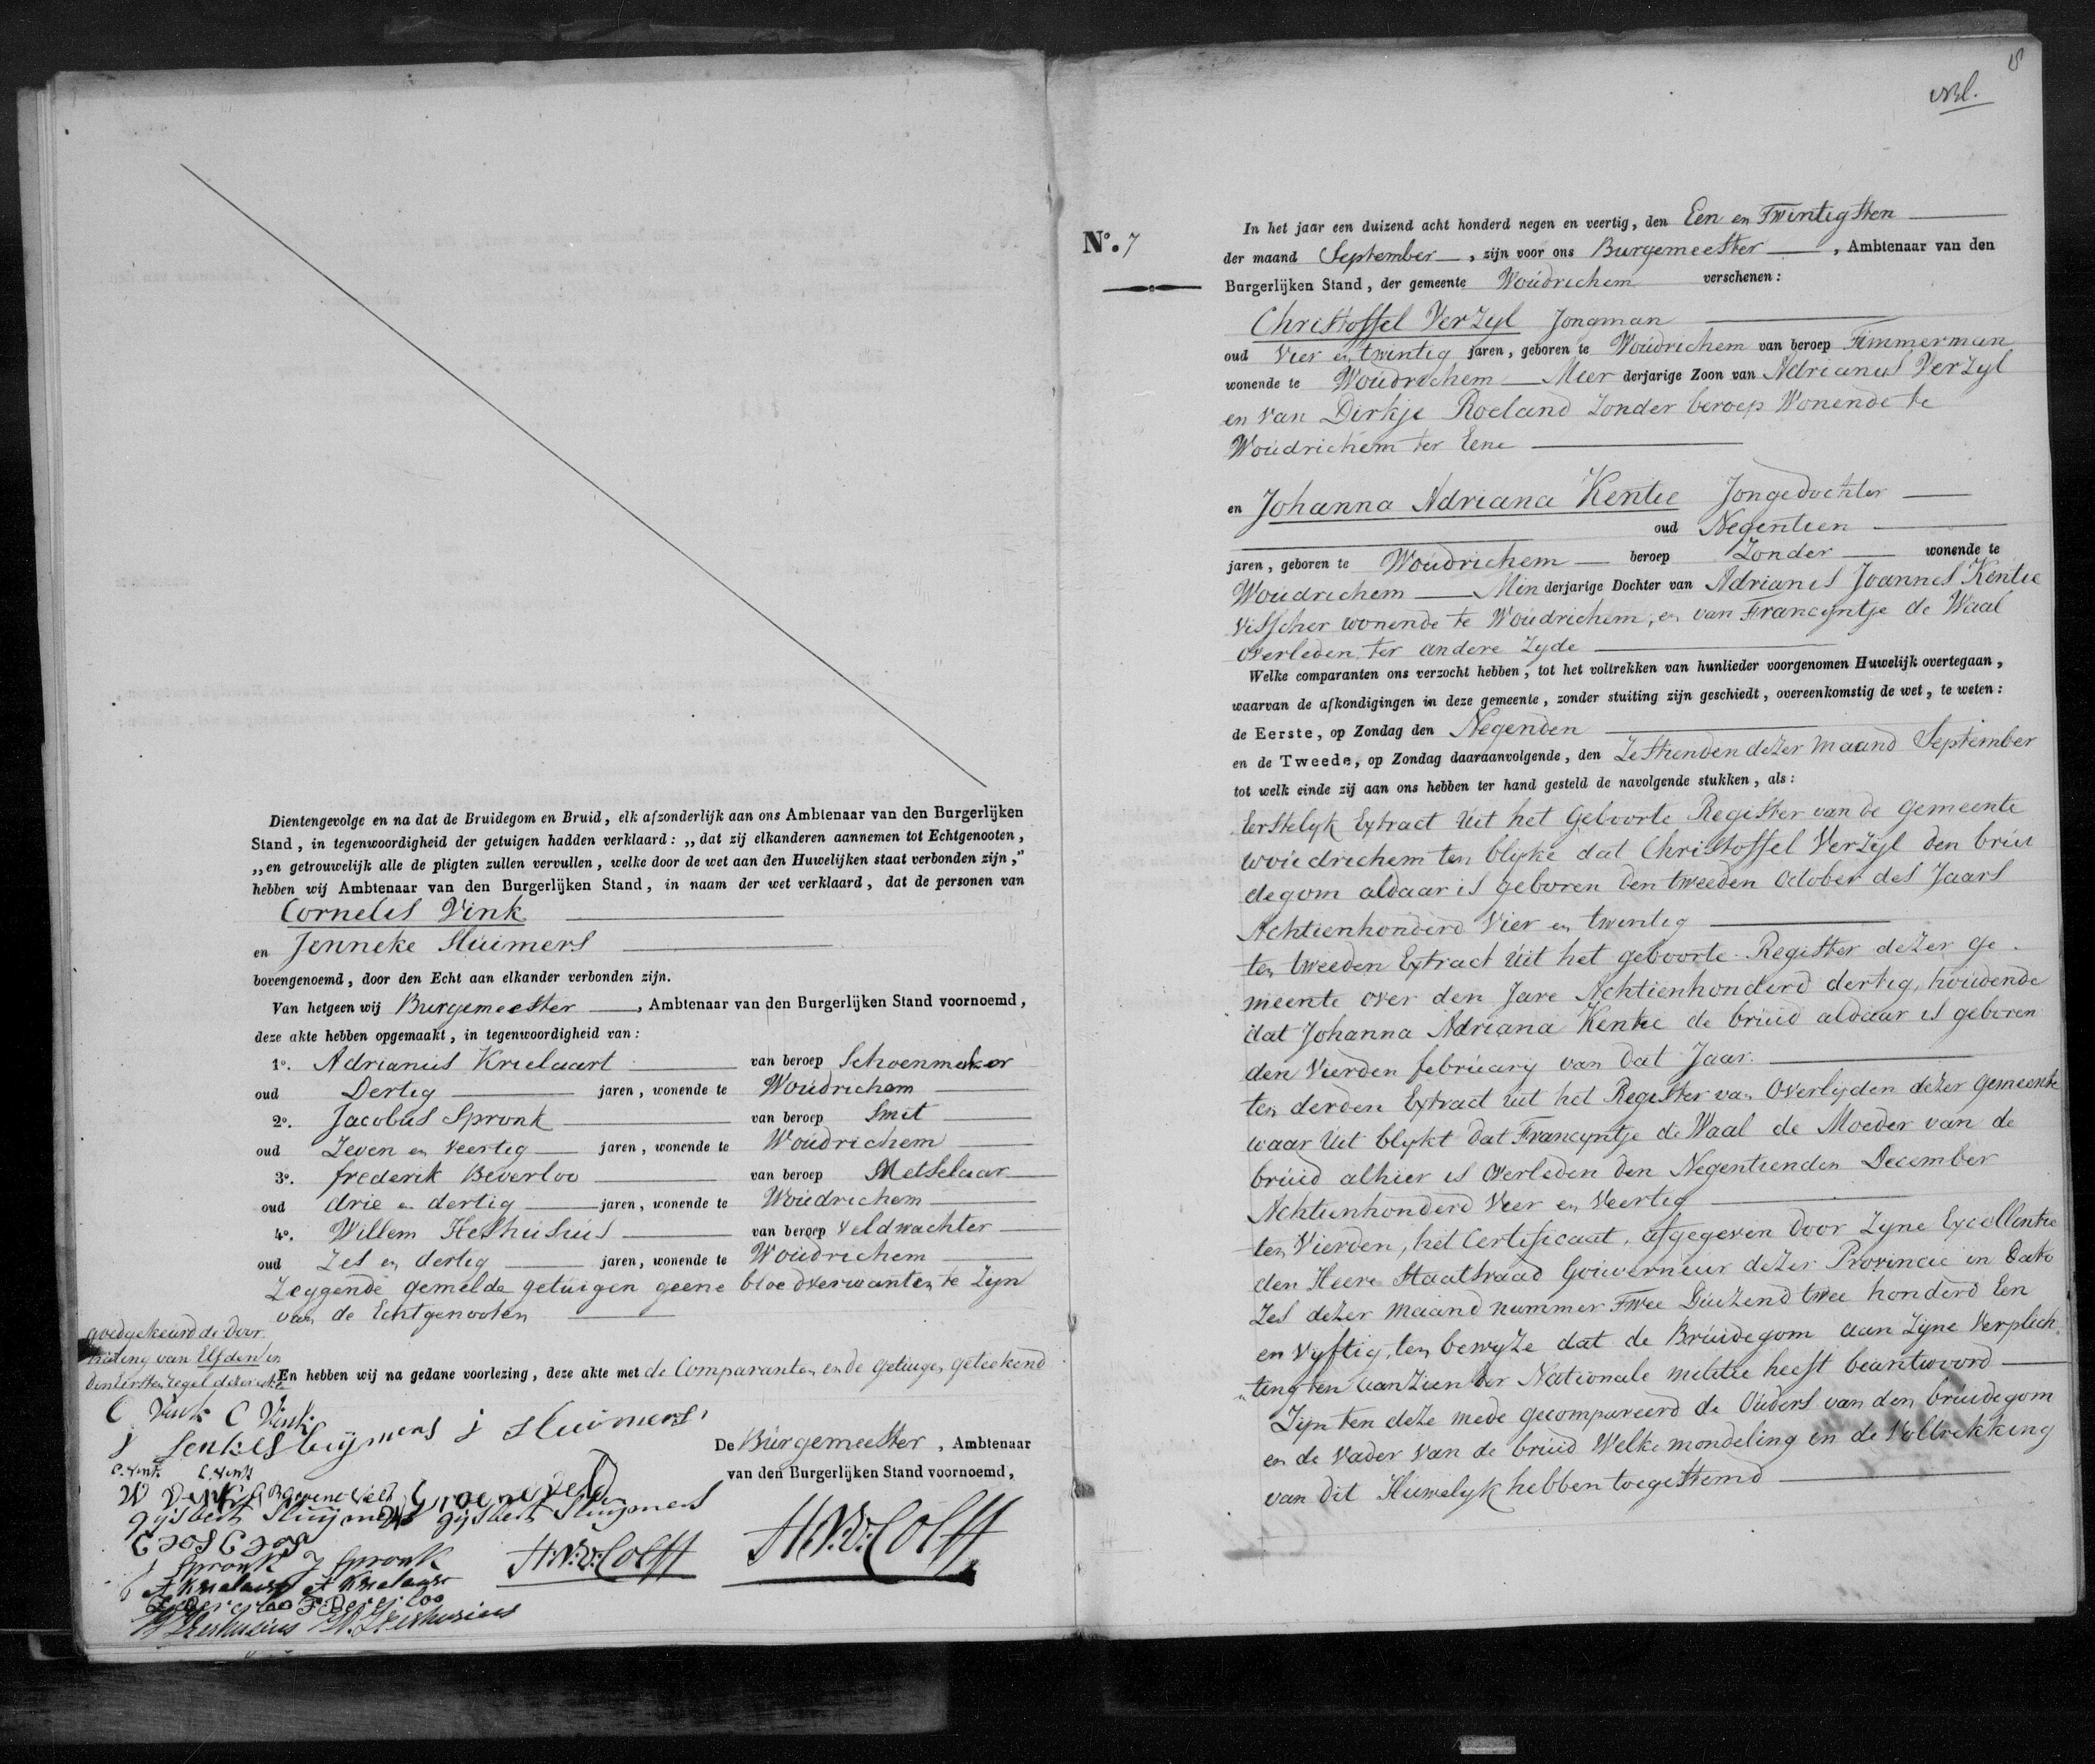 Dientengevolge en na dat de Bruidegom en Bruid, elk afzonderlijk aan ons Ambtenaar van den Burgerlijken
Stand, in tegenwoordigheid der getuigen hadden verklaard: „dat zij elkanderen aannemen tot Echtgenooten,
„en getrouwelijk alle de pligten zullen vervullen, welke door de wet aan den Huwelijken staat verbonden zijn,"
hebben wij Ambtenaar van den Burgerlijken Stand, in naam der wet verklaard, dat de personen van
Cornelis Vink
en Jenneke Sluimers
bovengenoemd, door den Echt aan elkander verbonden zijn.
Van hetgeen wij Burgemeester, Ambtenaar van den Burgerlijken Stand voornoemd,
deze akte hebben opgemaakt, in tegenwoordigheid van:
1o. Adrianus Krielaart van beroep Schoenmaker
oud Dertig jaren, wonende te Woudrichem
2o. Jacobus Spronk van beroep Smit
oud Zeven en veertig jaren, wonende te Woudrichem
3o. frederik Beverloo van beroep Metselaar
oud drie en dertig jaren, wonende te Woudrichem
4o. Willem Heshusius van beroep veldwachter
oud Zes en dertig jaren, wonende te Woudrichem
Zeggende gemelde getuigen geene bloedverwanten te Zyn
van de Echtgenooten
goedgekeurd de door
haling van Elfden en
den Eersten regel dezer akte
En hebben wij na gedane voorlezing, deze akte met de Comparanten en de getuigen geteekend
C Vink C Vink
J Sluimers
De Burgemeester, Ambtenaar
van den Burgerlijken Stand voornoemd,
C. Vink C. Vink
W Vink Groeneveld
gijsbert Sluijmers gijsbert Sluijmers
J Spronk J Spronk
A Krielaart A Krielaart
F Beverloo F Beverloo
W Heshusius W. Heshusius
H.N.v: Colff H.N.v: Colff
8
No. 7
In het jaar een duizend acht honderd negen en veertig, den Een en Twintigsten
der maand September, zijn voor ons Burgemeester, Ambtenaar van den
Burgerlijken Stand, der gemeente Woudrichem verschenen:
Christoffel Verzyl Jongman
oud Vier en twintig jaren, geboren te Woudrichem van beroep Timmerman
wonende te Woudrichem Meer derjarige Zoon van Adrianus Verzyl
en van Dirkje Roeland Zonder beroep Wonende te
Woudrichem ter Eene
en Johanna Adriana Kentie Jongedochter
oud Negentien
jaren, geboren te Woudrichem beroep Zonder wonende te
Woudrichem Min derjarige Dochter van Adrianus Joannes Kentie
visscher wonende te Woudrichem, en van Francyntje de Waal
overleden ter andere Zyde
Welke comparanten ons verzocht hebben, tot het voltrekken van hunlieder voorgenomen Huwelijk overtegaan,
waarvan de afkondigingen in deze gemeente, zonder stuiting zijn geschiedt, overeenkomstig de wet, te weten:
de Eerste, op Zondag den Negenden
en de Tweede, op Zondag daaraanvolgende, den Zestienden dezer maand September
tot welk einde zij aan ons hebben ter hand gesteld de navolgende stukken, als:
Eerstelyk Extract uit het Geboorte Register van de gemeente
woudrichem ten blyke dat Christoffel Verzyl den brui
degom aldaar is geboren den tweeden October des Jaars
Achtienhonderd Vier en twintig
ten tweeden Extract uit het geboorte Register dezer ge
meente over den Jare Achtienhonderd dertig, houdende
dat Johanna Adriana Kentie de bruid aldaar is geboren
den Vierden february van dat Jaar.
ten derden Extract uit het Register van Overlyden dezer gemeente
waar uit blykt dat Francyntje de Waal de Moeder van de
bruid alhier is overleden den Negentienden December
Achtienhonderd Vier en Veertig
ten Vierden, het Certificaat, afgegeven door Zyne Excellentie
den Heere Staatsraad Gouverneur dezer Provincie in Dato
Zes dezer maand nummer Twee Duizend twee honderd Een
en Vyftig, ten bewyze dat de Bruidegom aan Zyne Verplich
ting ten aanzien der Nationale militie heeft beantwoord
Zyn ten deze mede gecompareerd de Ouders van den bruidegom
en de vader van de bruid Welke mondeling in de Voltrekking
van dit Huwelyk hebben toegestemd